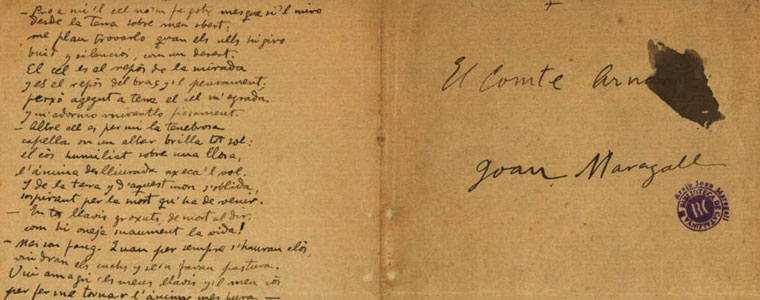 — Pro a mi 'l cel no'm fa goig mes que si'l miro
desde la terra sobre meu obert:
me plau trovarlo quan els ulls hi giro
buid y silenciós, com un desert.
El cel es el repós de la mirada
y es el repós del bras y'l pensament;
perxó ajegut a terra el cel m'agrada
y m'adormo mirantlo fixament.
— Altre cel es per mi la tenebrosa
capella on un altar brilla tot sol:
el cós humiliat sobre una llosa,
l'ánima deslliurada axeca'l vol.
Y de la terra y d'aquest mon s'oblida,
sospirant per la mort qu'ha de venir.
— En tos llavis groxuts de mortal dir,
com hi oneja suaument la vida!
— Mes son fang. Quan per sempre s'hauran clós,
vindran els cuchs y se'n faran pastura.
Vui amagri els meus llavis y'l meu cós
per ferme tornar l'ánima mes pura —
El Comte Arn
Joan Maragall
Arxiu Joan Maragall
BIBLIOTECA DE CATALUNYA
BC